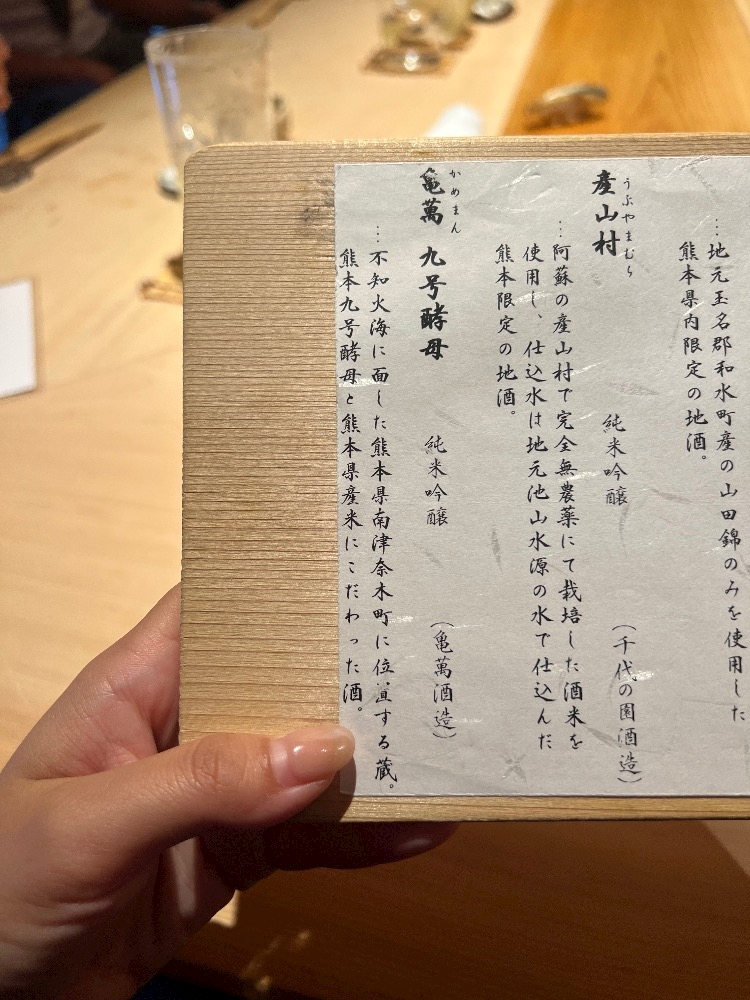 …地元玉名郡和水町産の山田錦のみを使用した
熊本県内限定の地酒。
うぶやまむら
産山村 純米吟醸 (千代の園酒造)
…阿蘇の産山村で完全無農薬にて栽培した酒米を
使用し、仕込水は地元池山水源の水で仕込んだ
熊本限定の地酒。
かめまん
亀萬 九号酵母 純米吟醸 (亀萬酒造)
…不知火海に面した熊本県南津奈木町に位置する蔵。
熊本九号酵母と熊本県産米にこだわった酒。